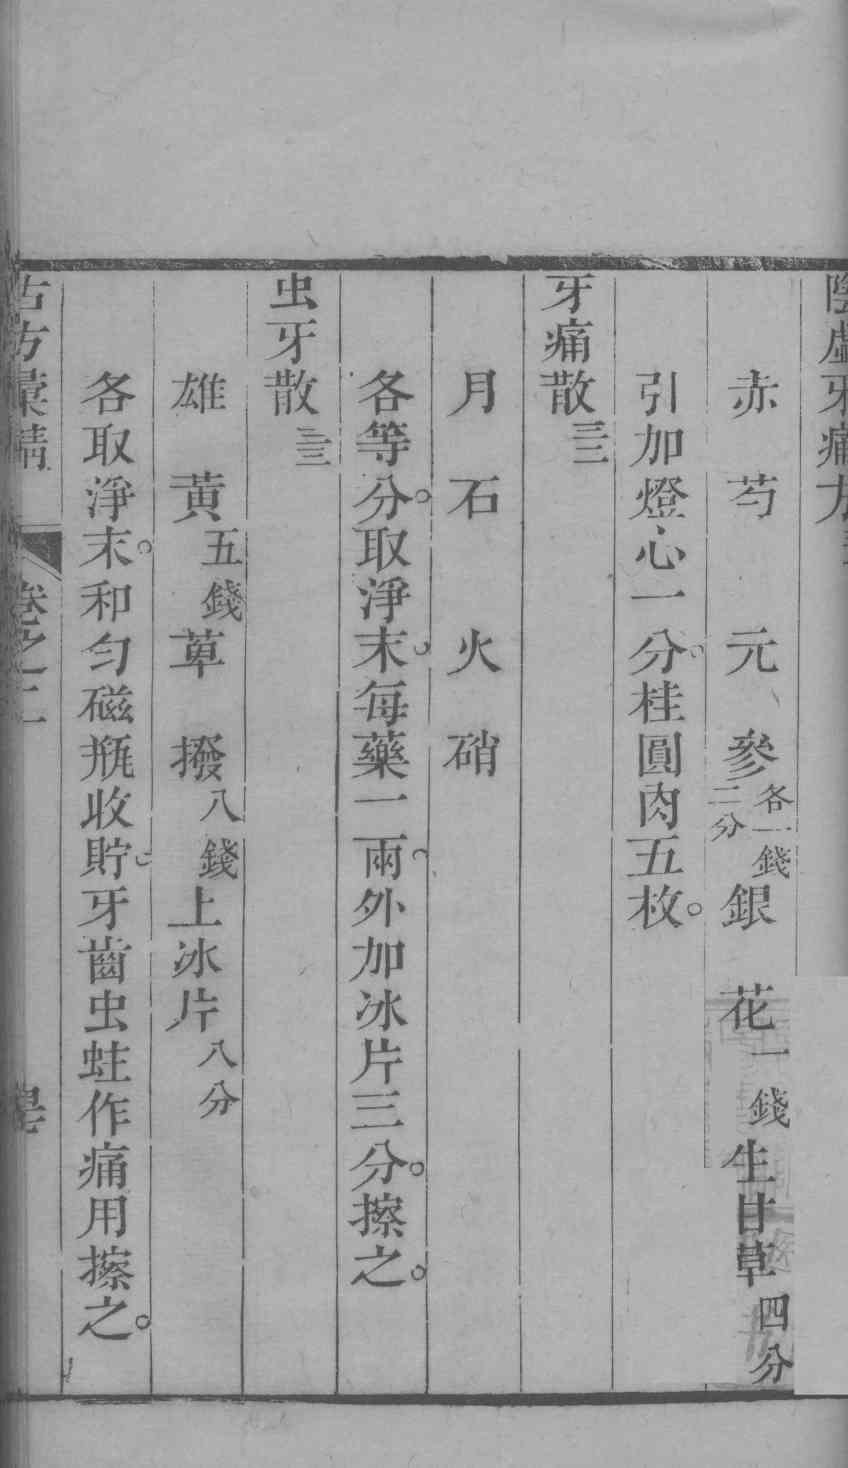 陰虛牙痛方
赤芍 元參各一錢二分 銀花一錢 生甘草四分
引加燈心一分。桂圓肉五枚。
牙痛散三三
月石 火硝
各等分。取淨末。每藥一兩。外加冰片三分。擦之。
虫牙散三三
雄黃五錢 蓽撥八錢 上冰片八分
各取淨末。和勻磁瓶收貯。牙齒虫蛀作痛用擦之。
古方彙精 卷之二